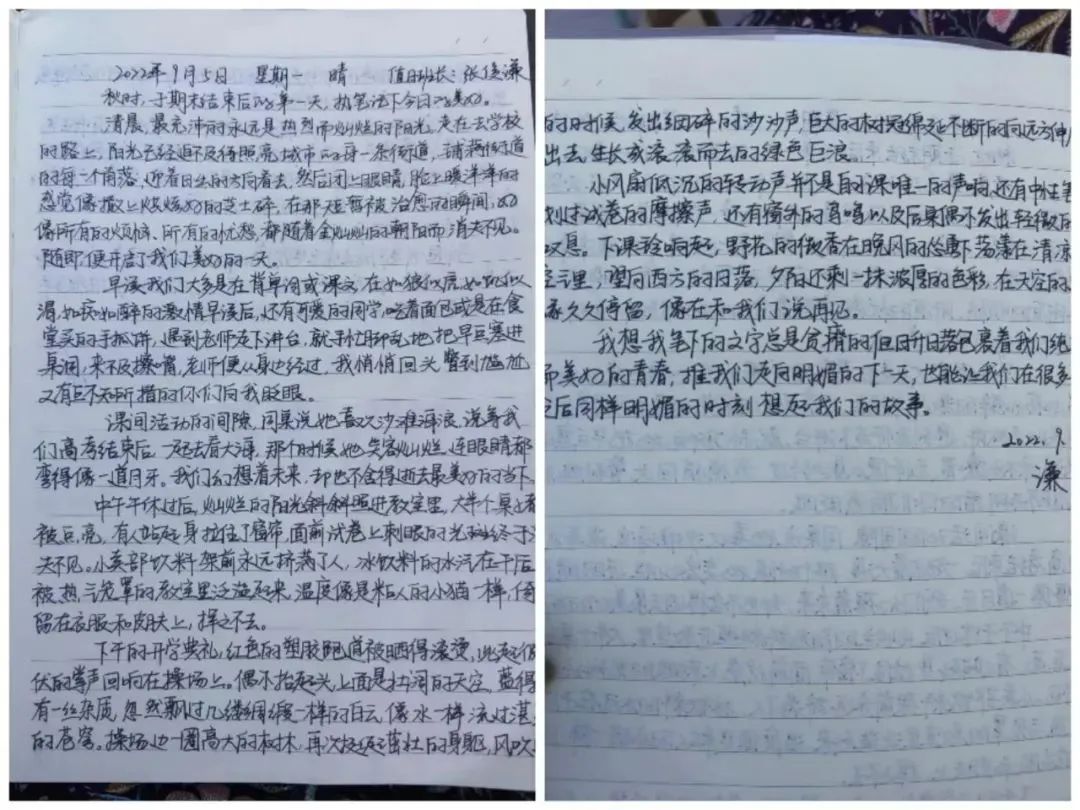 2022年9月5日 星期一 晴 值日班长:张俊谦
秋时,于期末结束后的第一天,执笔记下今日的美好。
清晨,最充沛的永远是热烈而灿烂的阳光,走在去学校
的路上,阳光已经迫不及待照亮城市的每一条街道,铺满街道
的每一个角落,迎着日出的方向看去,然后闭上眼睛,脸上暖洋洋的
感觉像撒上烤好的芝士碎,在那短暂被治愈的瞬间,好
像所有的烦恼、所有的忧愁都随着金灿灿的朝阳而消失不见。
随即便开启了我们美好的一天。
早读我们大多是在背单词或课文,在如狼似虎、如饥似
渴、如痴如醉的激情早读后,还有可爱的同学吃着面包或是在食
堂买的手抓饼,遇到老师走下讲台,就手忙脚乱地把早豆塞进
桌洞,来不及擦嘴,老师便从身边经过,我悄悄回头,瞥到尴尬
又有些不知所措的你们向我眨眼。
课间活动的间隙,同桌说她喜欢沙滩海浪,说等我
们高考结束后一起去看大海,那个时候她笑容灿烂,连眼睛都
弯得像一道月牙。我们幻想着未来,却也不舍得逝去最美好的当下
中午午休过后,灿烂的阳光斜斜照进教室里,大半个桌子都
被点亮,有人站起身拉住了窗帘,面前试卷上刺眼的光终于
失不见。小卖部饮料架前永远挤满了人,冰饮料的水汽在午后
被热气笼罩的教室里泛滥起来,温度像是粘人的小猫一样,停
留在衣服和皮肤上,挥之不去。
下午的开学典礼,红色的塑胶跑道被晒得滚烫,此起彼
伏的掌声回响在操场上。偶尔抬起头,上面是壮阔的天空,蓝得
有一丝杂质,忽然飘过几缕绸缎一样的白云,像水一样流过湛
的苍穹。操场边一圈高大的树木,再次挺起茁壮的身躯,风吹
的时候,发出细碎的沙沙声,巨大的树冠绵延不断的向远方伸
出去,生长成滚滚而去的绿色巨浪。
小风扇低沉的转动声并不是自习课唯一的声响,还有中性笔
划过试卷的摩擦声,还有窗外的鸟鸣以及后桌偶尔发出轻微的
叹息。下课铃响起,野花的微香在晚风的怂恿下荡漾在清凉
空气里,望向西方的日落,夕阳还剩一抹浓厚的色彩,在天空的
久久停留,像在和我们说再见。
我想我笔下的文字总是贫瘠的但日升日落包裹着我们纯
而美好的青春,推我们走向明媚的下一天,也能让我们在很多
之后同样明媚的时刻想起我们的故事。
2022.9.
谦